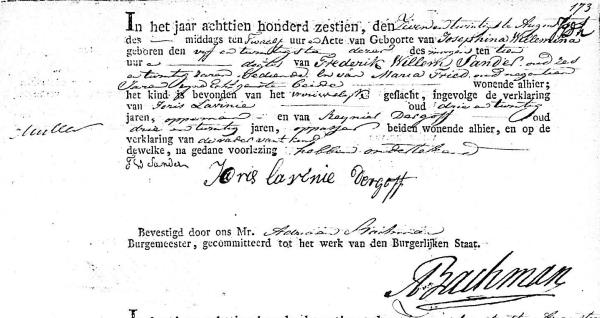 173
In het jaar achttien honderd zestien, den Zeven en twintigste Augustus
des middags ten Twaalf uur Acte van Geboorte van Josephina Willemina
geboren den vijf en twintigste dezer des morgens ten tien
uur dochter van Frederik Willem Sander oud zes
en twintig Jaren, Bediende en van Maria
beide wonende alhier;
het kind is bevonden van het vrouwelijk geslacht, ingevolge de verklaring
van Joris Lavinie oud drie en twintig
jaren, opperman en van Reynier Dergoff oud
drie en twintig jaren, oppasser beiden wonende alhier, en op de
verklaring van de vader van 't kind
dewelke, na gedane voorlezing hebben ondertekend
F W Sander
Joris Lavinie Dergoff
Bevestigd door ons Mr. Adriaan Bachman
Burgemeester, gecommitteerd tot het werk van den Burgerlijken Staat.
ABachman